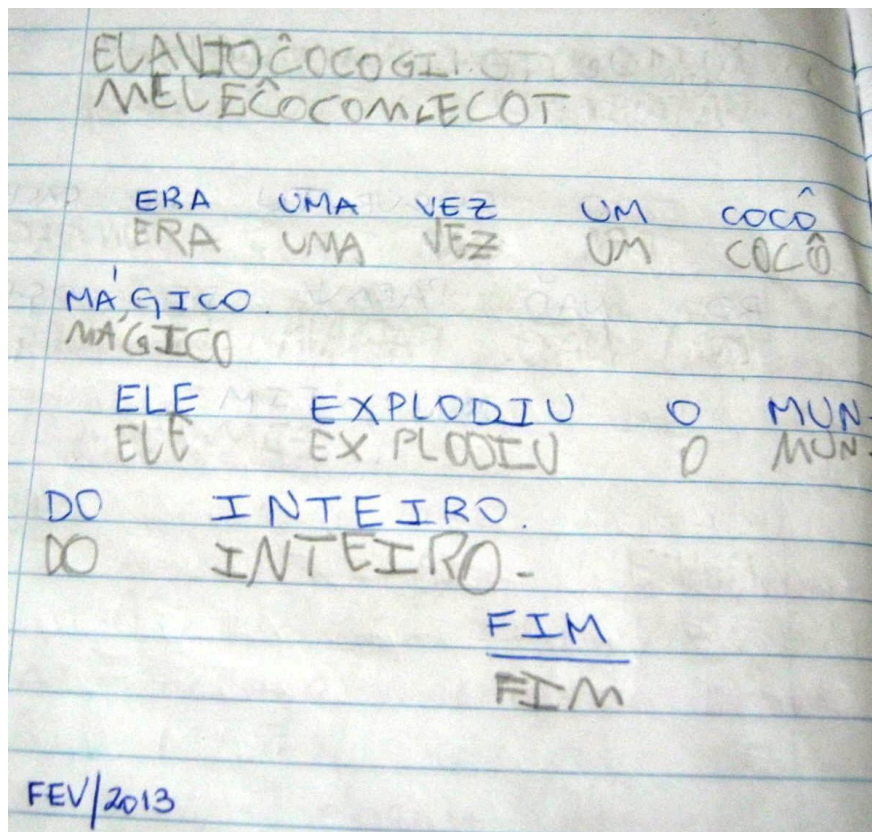 ELAVIOĈOCOGI
MELEĈOCOMLECOT
ERA UMA VEZ UM COCÔ
ERA UMA VEZ UM COCÔ
MÁGICO.
MÁGICO
ELE EXPLODIU O MUN-
ELE EXPLODIU O MUN-
DO INTEIRO.
DO INTEIRO-
FIM
FIM
FEV/2013